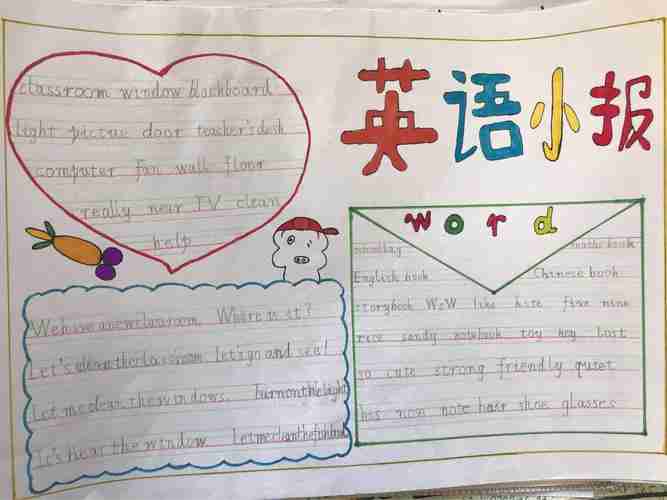 英语小报
classroom window blackboard
light picture door teacher's desk
computer fan wall floor
really near TV clean
help
word
schoolbag maths book
English book Chinese book
storybook WoW like kite five nine
rice candy notebook toy key lost
so cute strong friendly quiet
his hair shoe glasses
We have a new classroom. Where is it?
Let's clean the classroom. Let's go and see!
Let me clean the windows. Turn on the light
It's near the window Let me clean the fishbowl